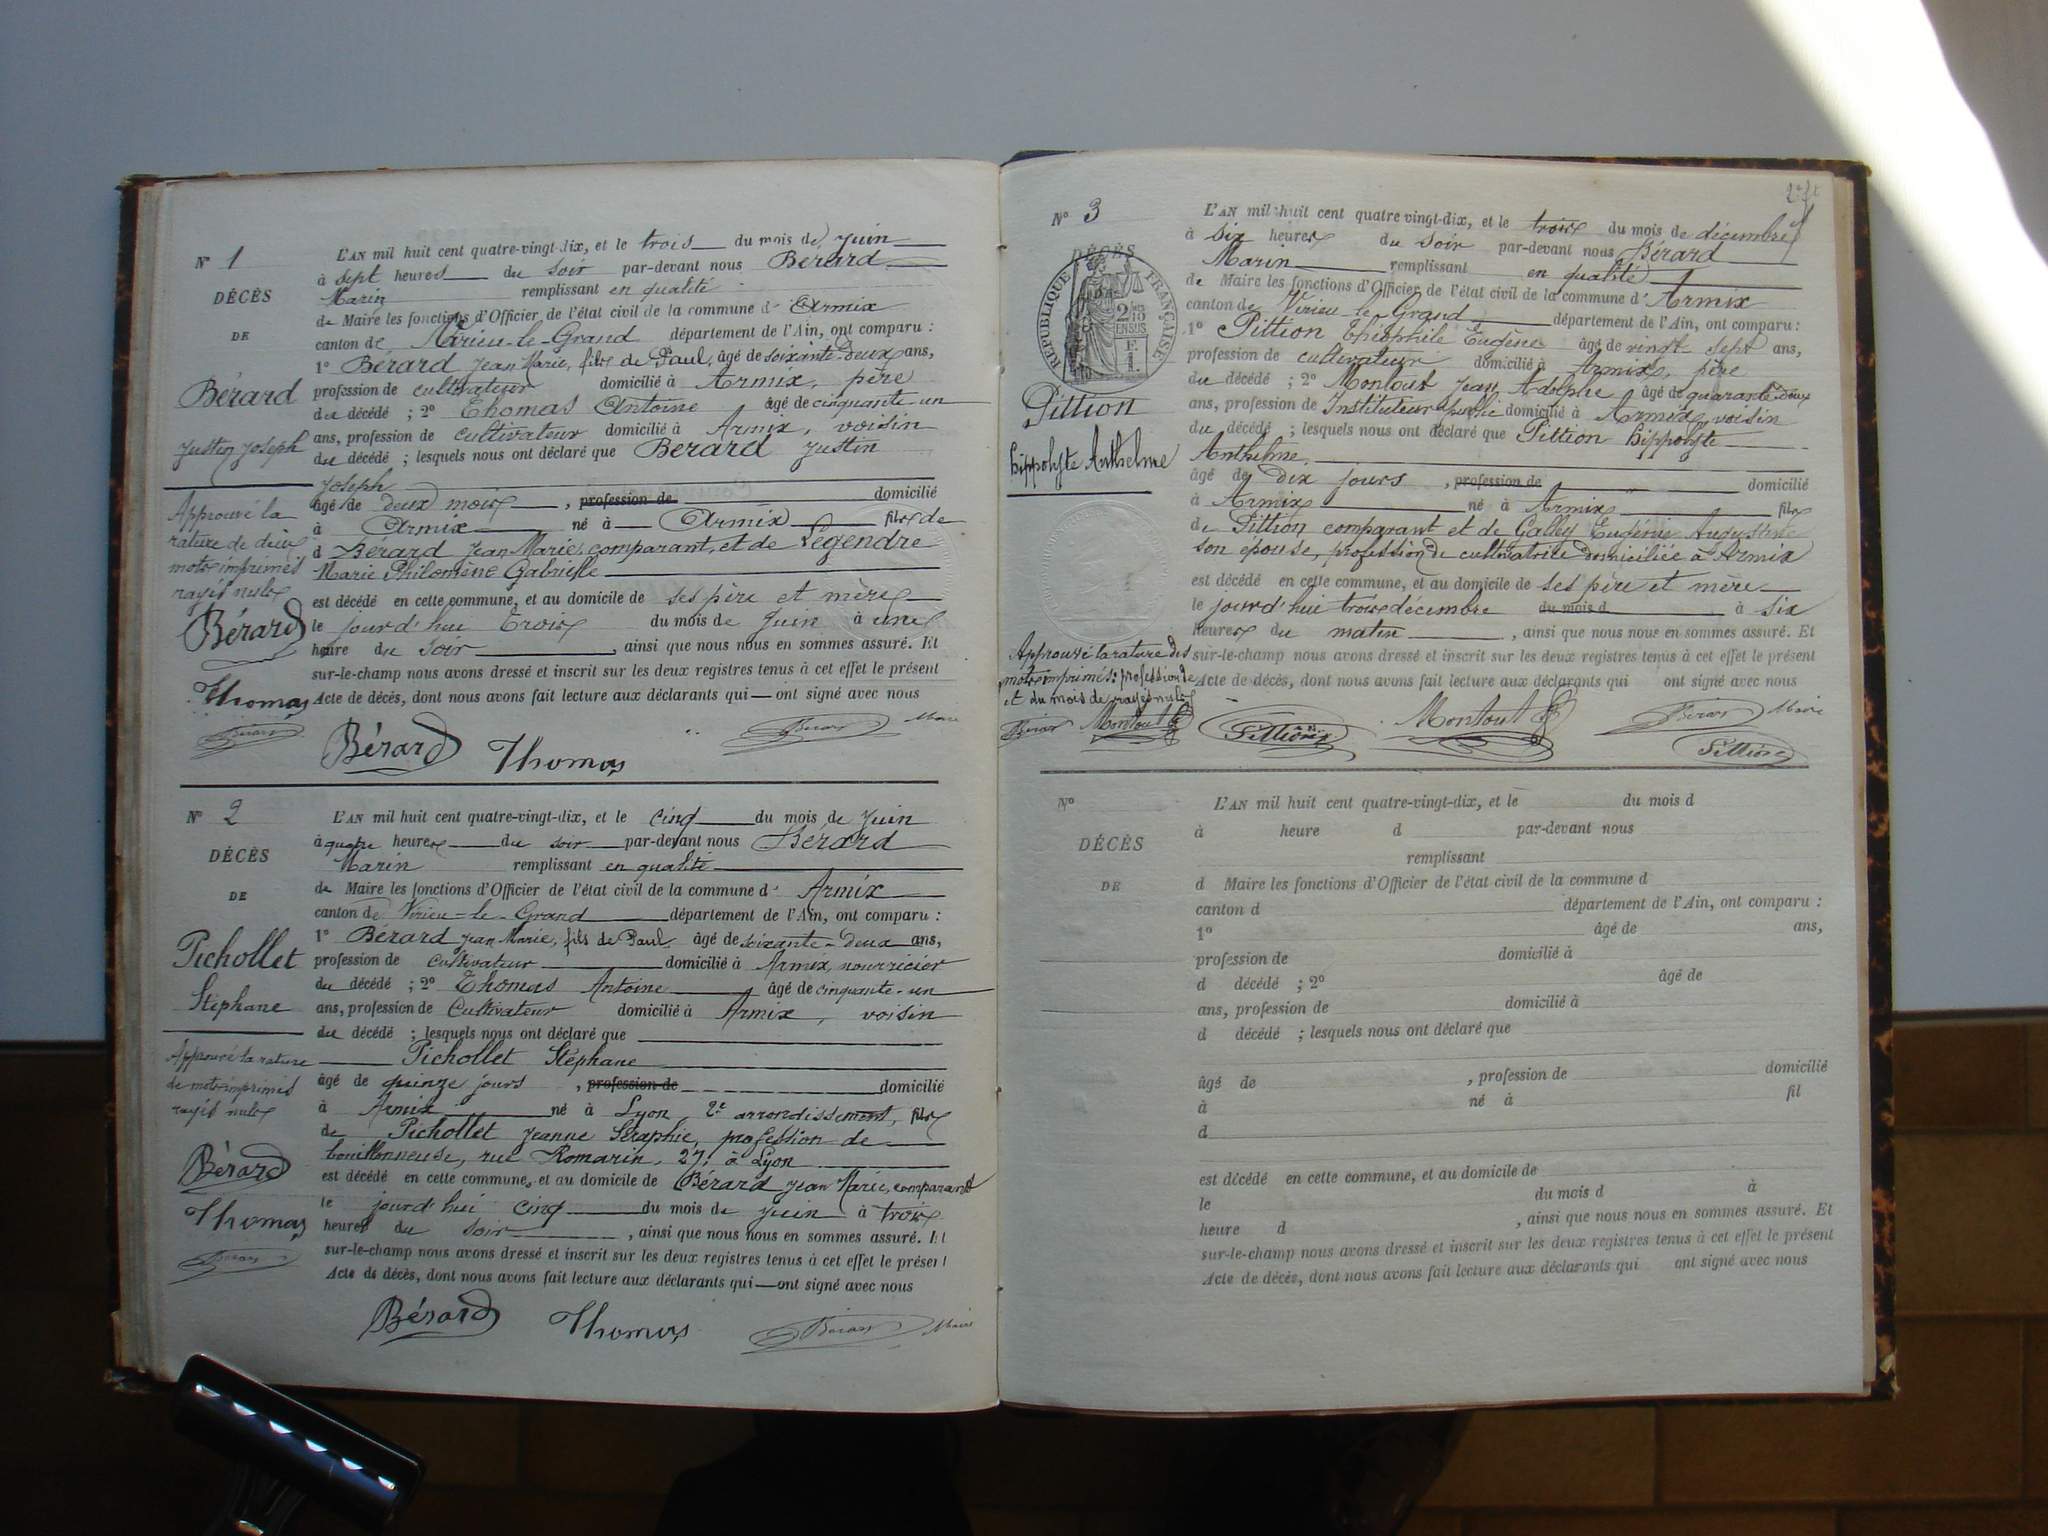 N° 1
DÉCÈS
DE
Bérard
Justin Joseph
Approuvé la
rature de deux
mots imprimés
rayés nuls
Bérard
Thomas
Bérard
L'AN mil huit cent quatre-vingt-dix, et le trois du mois de Juin
à sept heures du soir par-devant nous Bérard
Marin remplissant en qualité
de Maire les fonctions d'Officier de l'état civil de la commune d'Armix
canton de Virieu-le-Grand département de l'Ain, ont comparu :
1° Bérard Jean Marie, fils de Paul, âgé de soixante-deux ans,
profession de cultivateur domicilié à Armix, père
du décédé ; 2° Thomas Antoine âgé de cinquante-un
ans, profession de cultivateur domicilié à Armix, voisin
du décédé ; lesquels nous ont déclaré que Bérard Justin
Joseph
âgé de deux mois, profession de domicilié
à Armix né à Armix fils de
d Bérard Jean Marie, comparant, et de Legendre
Marie Philomène Gabrielle
est décédé en cette commune, et au domicile de ses père et mère
le jourd'hui trois du mois de Juin à une
heure du soir, ainsi que nous nous en sommes assuré. Et
sur-le-champ nous avons dressé et inscrit sur les deux registres tenus à cet effet le présent
Acte de décès, dont nous avons fait lecture aux déclarants qui ont signé avec nous
Bérard Thomas Bérard Maire
N° 2
DÉCÈS
DE
Pichollet
Stéphane
Approuvé la rature
de mots imprimés
rayés nuls
Bérard
Thomas
Bérard
L'AN mil huit cent quatre-vingt-dix, et le cinq du mois de Juin
à quatre heures du soir par-devant nous Bérard
Marin remplissant en qualité
de Maire les fonctions d'Officier de l'état civil de la commune d'Armix
canton de Virieu-le-Grand département de l'Ain, ont comparu :
1° Bérard Jean Marie, fils de Paul âgé de soixante-deux ans,
profession de cultivateur domicilié à Armix, nourricier
du décédé ; 2° Thomas Antoine âgé de cinquante-un
ans, profession de Cultivateur domicilié à Armix, voisin
du décédé ; lesquels nous ont déclaré que
Pichollet Stéphane
âgé de quinze jours, profession de domicilié
à Armix né à Lyon, 2e arrondissement, fils
de Pichollet Jeanne Séraphie, profession de
rue Romarin, 27, à Lyon
est décédé en cette commune, et au domicile de Bérard Jean Marie, comparant
le jourd'hui cinq du mois de Juin à trois
heures du soir, ainsi que nous nous en sommes assuré. Et
sur-le-champ nous avons dressé et inscrit sur les deux registres tenus à cet effet le présent
Acte de décès, dont nous avons fait lecture aux déclarants qui ont signé avec nous
Bérard Thomas Bérard Maire
N° 3
DÉCÈS
RÉPUBLIQUE FRANÇAISE
2/10
EN SUS
Pittion
hippolyte Anthelme
Approuvé la rature des
mots imprimés: profession de
et du mois de rayés nuls
Bérard Montout
L'AN mil huit cent quatre vingt-dix, et le trois du mois de décembre
à six heures du soir par-devant nous Bérard
Marin remplissant en qualité
de Maire les fonctions d'Officier de l'état civil de la commune d'Armix
canton de Virieu-le-Grand département de l'Ain, ont comparu :
1° Pittion théophile Eugène âgé de vingt sept ans,
profession de cultivateur domicilié à Armix, père
du décédé ; 2° Montout Jean Adolphe âgé de quarante-deux
ans, profession de Instituteur public domicilié à Armix, voisin
du décédé ; lesquels nous ont déclaré que Pittion hippolyte
Anthelme
âgé de dix jours, profession de domicilié
à Armix né à Armix fils
de Pittion comparant et de Galley Eugénie Augustine
son épouse, profession de cultivatrice domiciliée à Armix
est décédé en cette commune, et au domicile de ses père et mère
le jourd'hui trois décembre du mois d à six
heures du matin, ainsi que nous nous en sommes assuré. Et
sur-le-champ nous avons dressé et inscrit sur les deux registres tenus à cet effet le présent
Acte de décès, dont nous avons fait lecture aux déclarants qui ont signé avec nous
Pittion Montout Bérard Maire
Pittion
N°
DÉCÈS
DE
L'AN mil huit cent quatre-vingt-dix, et le du mois d
à heure d par-devant nous
remplissant
d Maire les fonctions d'Officier de l'état civil de la commune d
canton d département de l'Ain, ont comparu :
1° âgé de ans,
profession de domicilié à
d décédé ; 2° âgé de
ans, profession de domicilié à
d décédé ; lesquels nous ont déclaré que
âgé de , profession de domicilié
à né à fil
d
est décédé en cette commune, et au domicile de
le du mois d à
heure d , ainsi que nous nous en sommes assuré. Et
sur-le-champ nous avons dressé et inscrit sur les deux registres tenus à cet effet le présent
Acte de décès, dont nous avons fait lecture aux déclarants qui ont signé avec nous